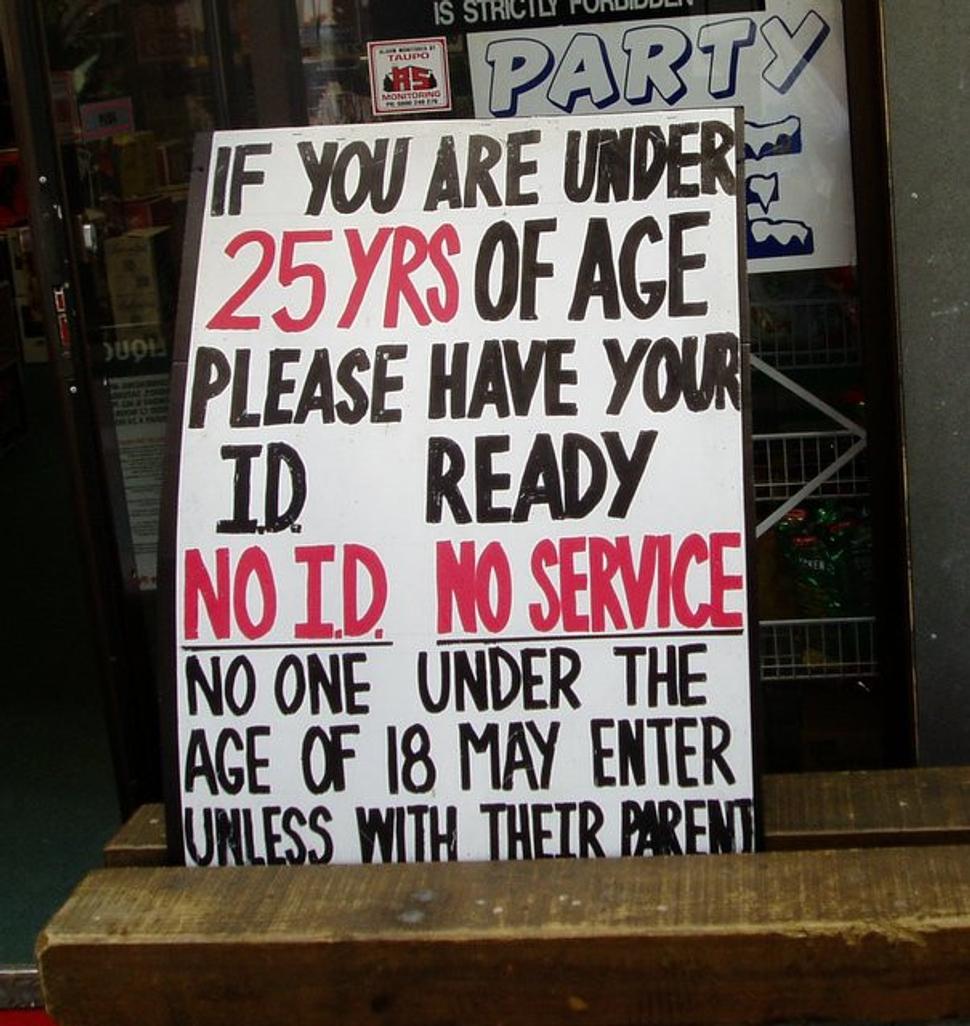 IS STRICTLY FORBIDDEN
PARTY
ALARM MONITORED BY
TAUPO
MONITORING
IF YOU ARE UNDER
25 YRS OF AGE
PLEASE HAVE YOUR
I.D. READY
NO I.D. NO SERVICE
NO ONE UNDER THE
AGE OF 18 MAY ENTER
UNLESS WITH THEIR PARENT